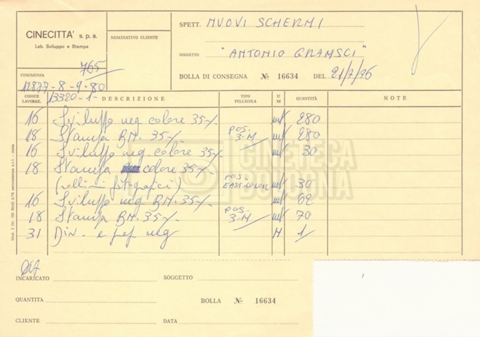 CINECITTÀ s.p.a.
Lab. Sviluppo e Stampa
NOMINATIVO CLIENTE
SPETT. NUOVI SCHERMI
SOGGETTO "ANTONIO GRAMSCI"
BOLLA DI CONSEGNA № 16634 DEL 21/7/76
765
11877-8-9-80
13320-1-
CODICE LAVORAZ. DESCRIZIONE TIPO PELLICOLA QUANTITÀ NOTE
16 Sviluppo neg colore 35% mt 280
18 Stampa BN. 35% POS. 3-M mt 280
16 Sviluppo neg colore 35% mt 30
18 Stampa colore 35% POS. mt 30
(rulli fotografici)
16 Sviluppo neg BN. 35% mt 62
18 Stampa BN. 35% POS. 3-M mt 70
31 Div. e prep neg H 1
CINETECA
BOLOGNA
INCARICATO SOGGETTO
QUANTITÀ BOLLA № 16634
CLIENTE DATA